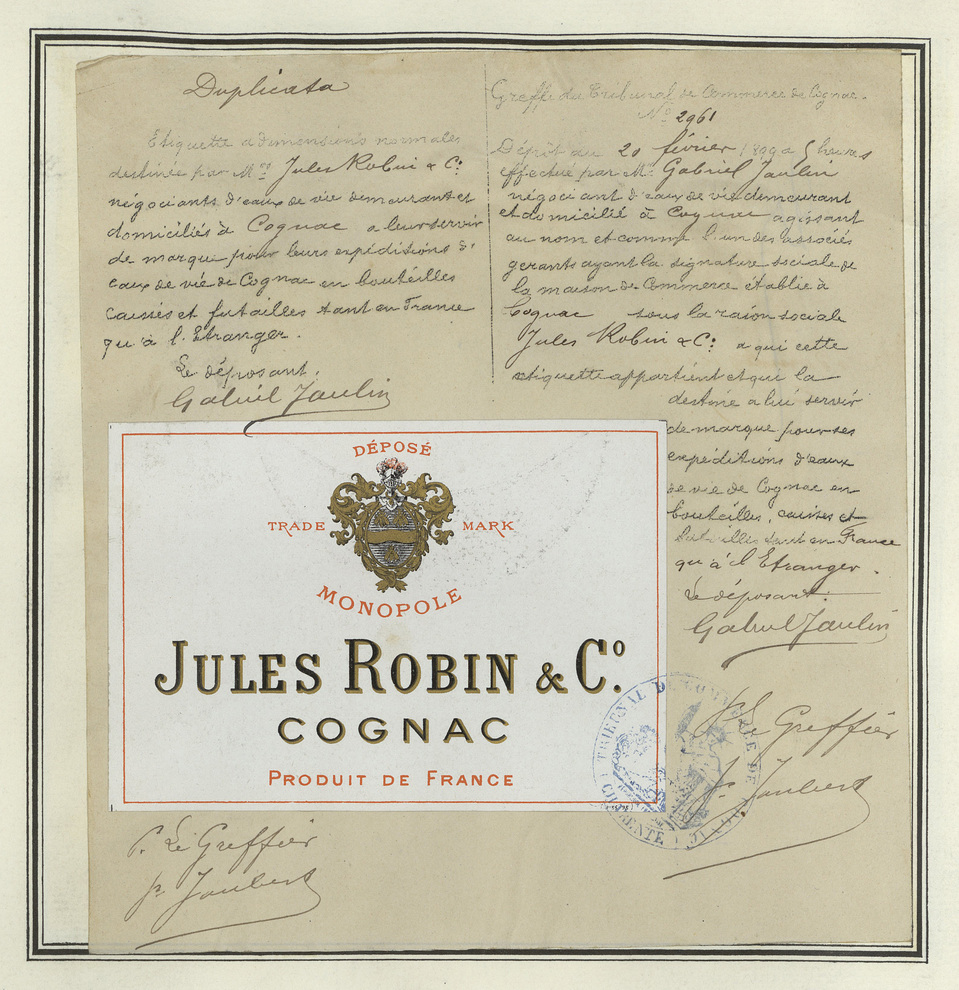 Duplicata
Etiquette a dimensions normales
destinée par Mrs Jules Robin & Co
négociants d'eaux de vie demeurant et
domiciliés à Cognac a leur servir
de marque pour leurs expéditions d'
eaux de vie de Cognac en bouteilles
caisses et futailles tant en France
qu'à l'Etranger.
Le déposant,
Gabriel Jaulin
Greffe du Tribunal de Commerce de Cognac.
No 2961
Dépôt du 20 février 189 a 5 heures
effectué par Mr Gabriel Jaulin
négociant d'eaux de vie demeurant
et domicilié à Cognac agissant
au nom et comme l'un des associés
gerants ayant la signature sociale de
la maison de Commerce établie à
Cognac sous la raison sociale
Jules Robin & Co a qui cette
etiquette appartient et qui la
destine a lui servir
de marque pour ses
expéditions d'eaux
de vie de Cognac en
bouteilles, caisses et
futailles tant en France
qu'à l'Etranger.
Le déposant:
Gabriel Jaulin
DÉPOSÉ
TRADE MARK
MONOPOLE
JULES ROBIN & Co.
COGNAC
PRODUIT DE FRANCE
TRIBUNAL DE COMMERCE DE
CHARENTE
Le Greffier
Joubert
P. Le Greffier
Joubert